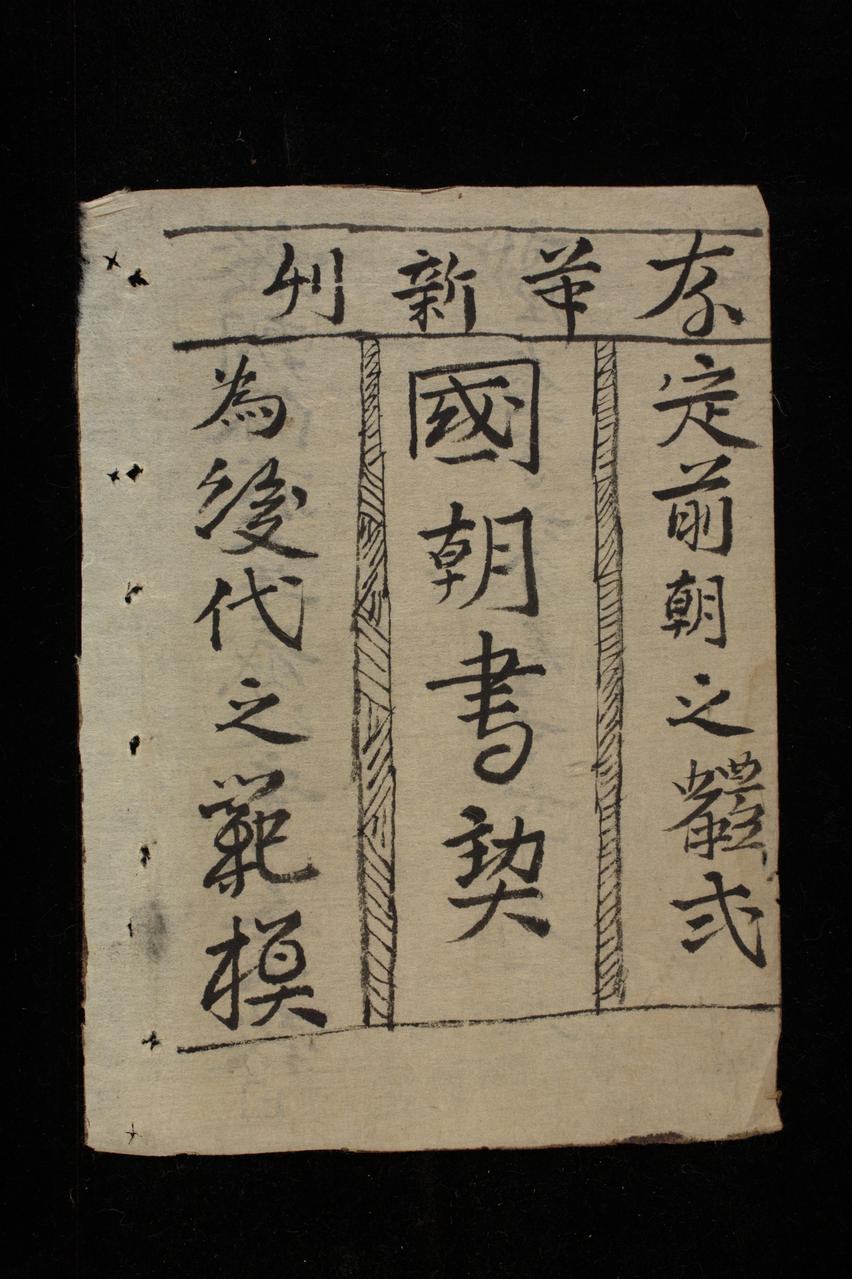 新刊
定前朝之體式
國朝書契
為後代之範模